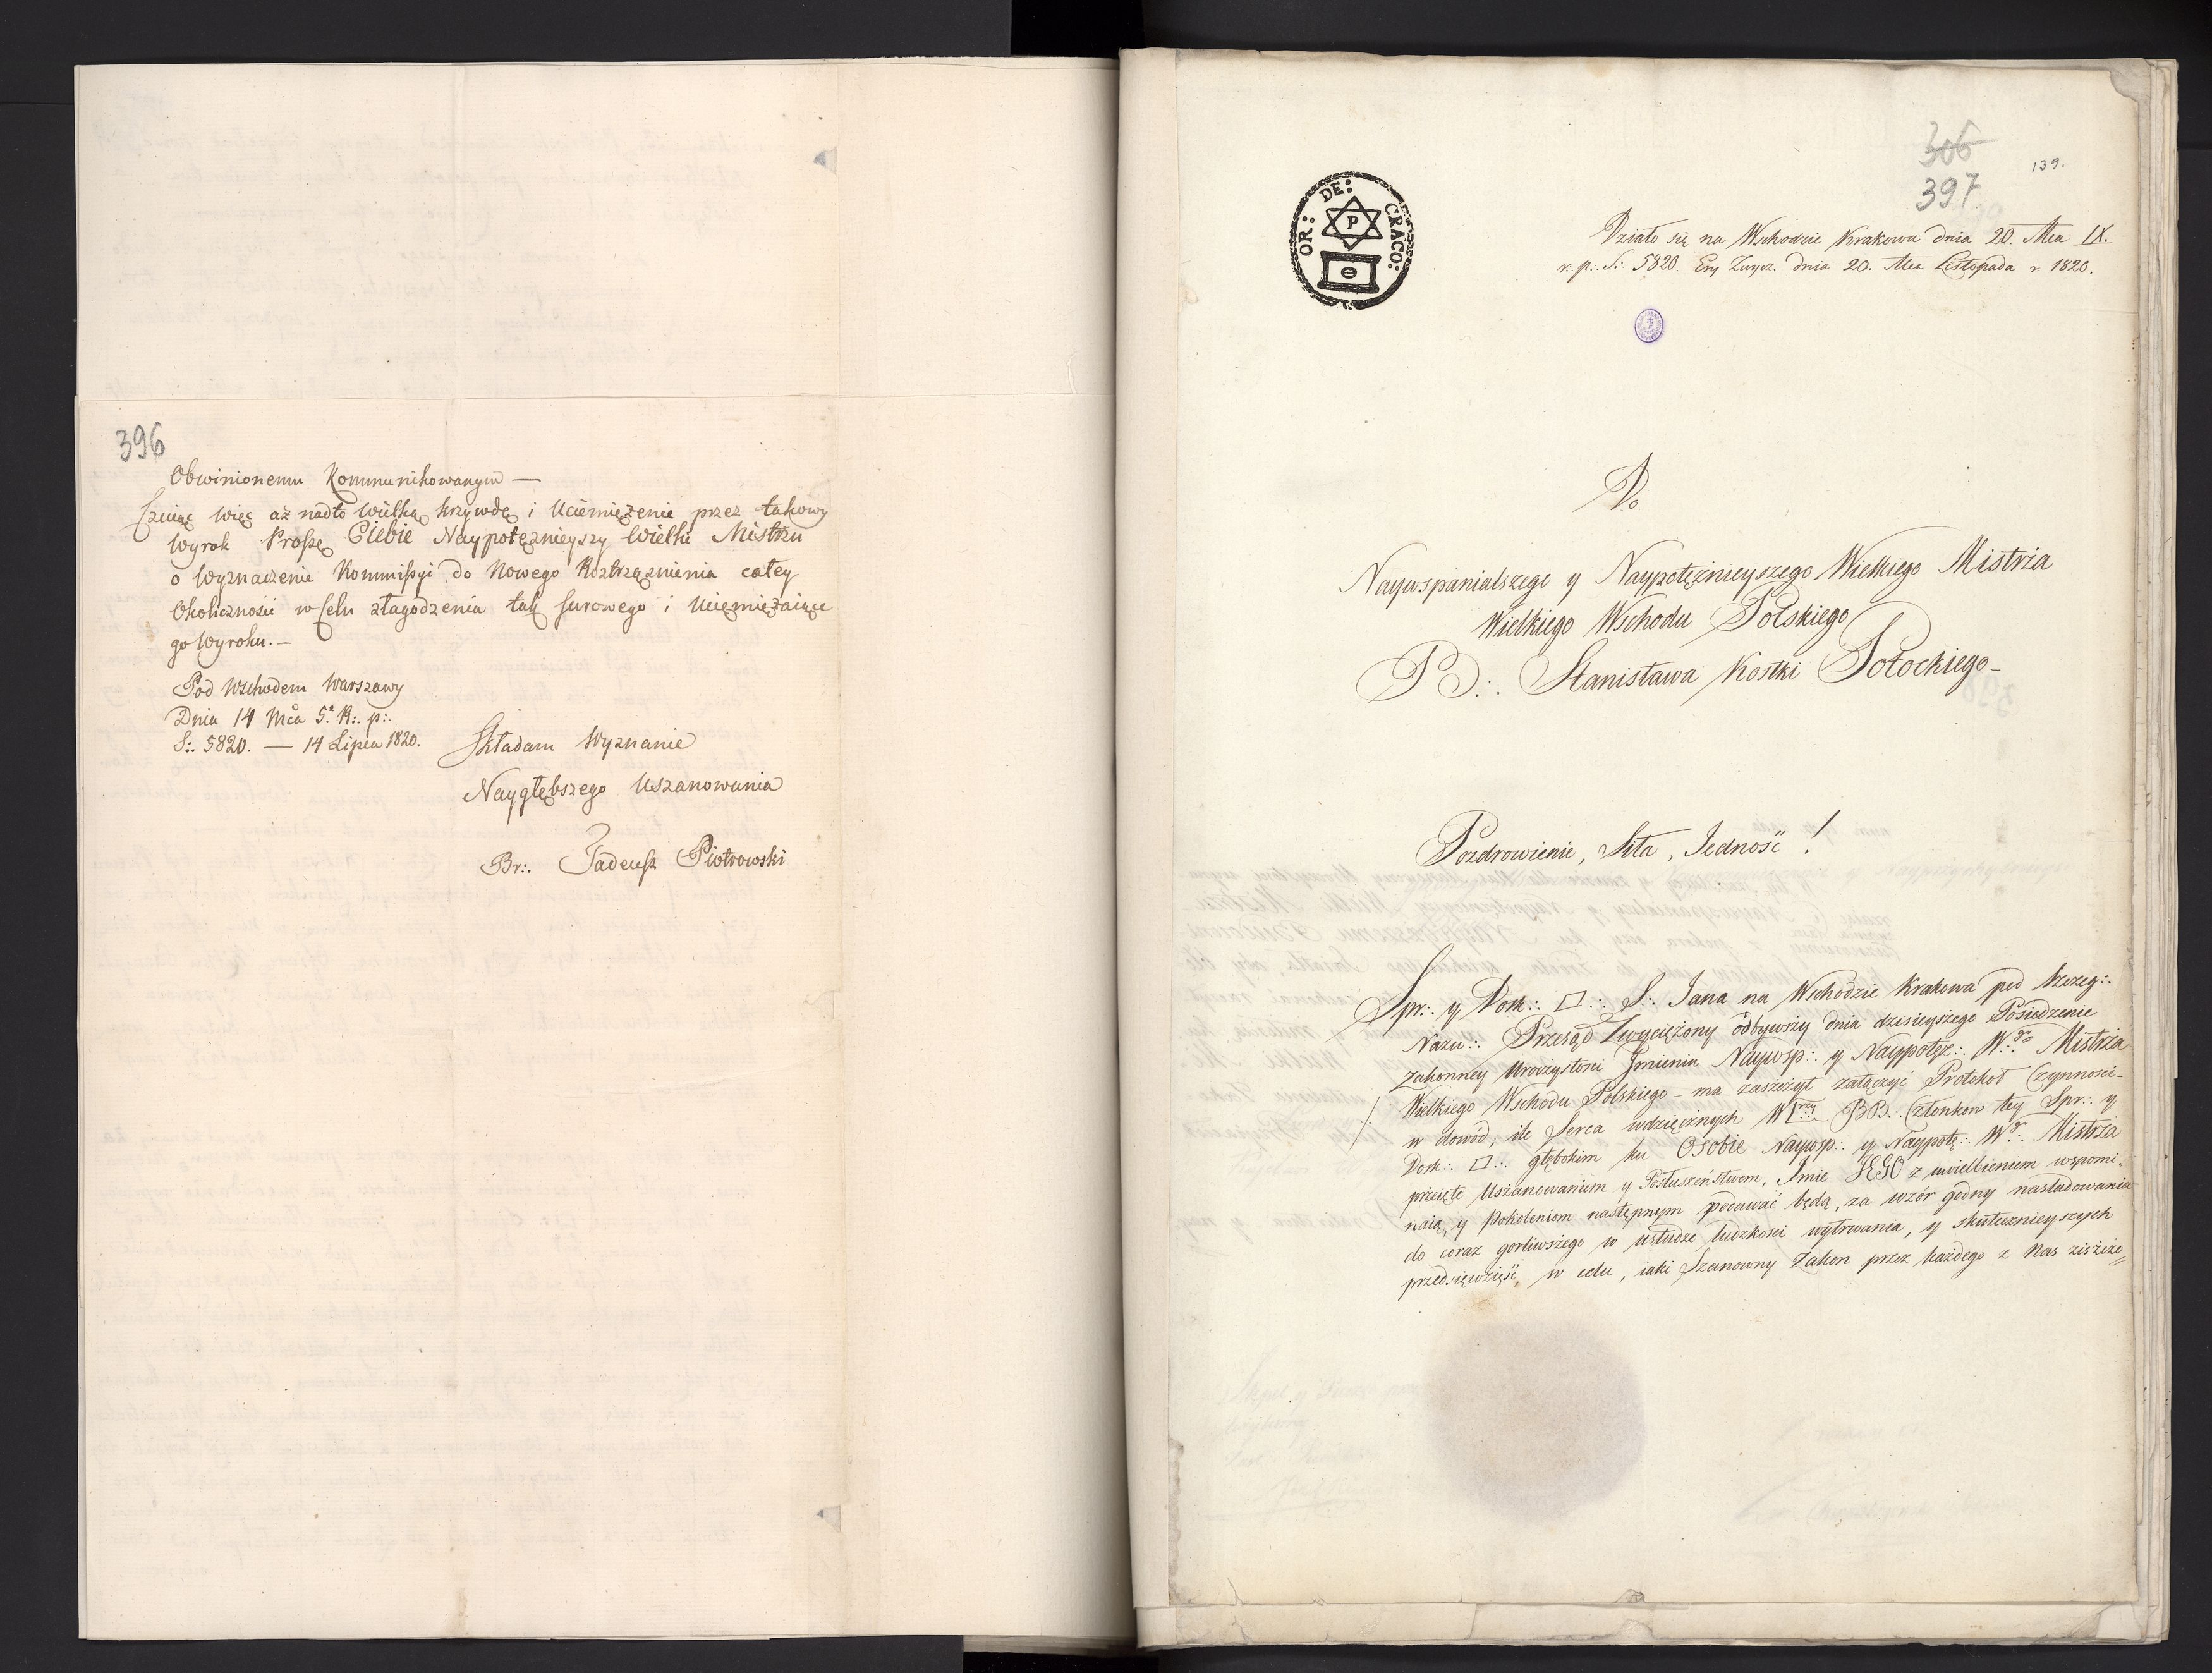 396
Obwinionemu Kommunikowanym —
Czuiąc więc aż nadto wielką krzywdę i Uciemiężenie przez takowy
wyrok Proszę Ciebie Naypotężnieyszy Wielki Mistrzu
o wyznaczenie Kommissyi do Nowego Roztrząsnienia całey
Okoliczności w Celu złagodzenia tak surowego i Uciemiężaiące
go wyroku. —
Pod Wschodem Warszawy
Dnia 14 Mca 5. R:. p:.
S:. 5820. — 14 Lipca 1820.
Składam Wyznanie
Naygłębszego Uszanowania
Br:. Tadeusz Piotrowski
306
397
139.
OR: DE: CRACO:
P
Działo się na Wschodzie Krakowa dnia 20. Mca IX.
r:. p:. S:. 5820. Ery Zwycz. dnia 20. Mca Listopada r. 1820.
Do
Naywspanialszego y Naypotężnieyszego Wielkiego Mistrza
Wielkiego Wschodu Polskiego
B:. Stanisława Kostki Potockiego –
Pozdrowienie, Siła, Jedność!
Spr:. y Dosk:. □:. S:. Jana na Wschodzie Krakowa pod szczeg:.
Nazw:. Przesąd Zwyciężony odbywszy dnia dzisieyszego Posiedzenie
Zakonney Uroczystości Jmienia Naywsp:. y Naypotęż:. W:. Mistrza
Wielkiego Wschodu Polskiego – ma zaszczyt załączyć Protokoł Czynności –
w dowód, ile Serca wdzięcznych BB:. Członkow tey Spr:. y
Dosk:. □:. głębokim ku Osobie Naywsp:. y Naypotę:. W:. Mistrza
przeięte Uszanowaniem y Posłuszeństwem, Jmie JEGO z uwielbieniem wspomi-
naią, y Pokoleniom następnym podawać będą, za wzór godny nasladowania
do coraz gorliwszego w usłudze ludzkości wytrwania, y skutecznieyszych
przedsięwzięść, w celu, iaki Szanowny Zakon przez każdego z Nas ziszczo=